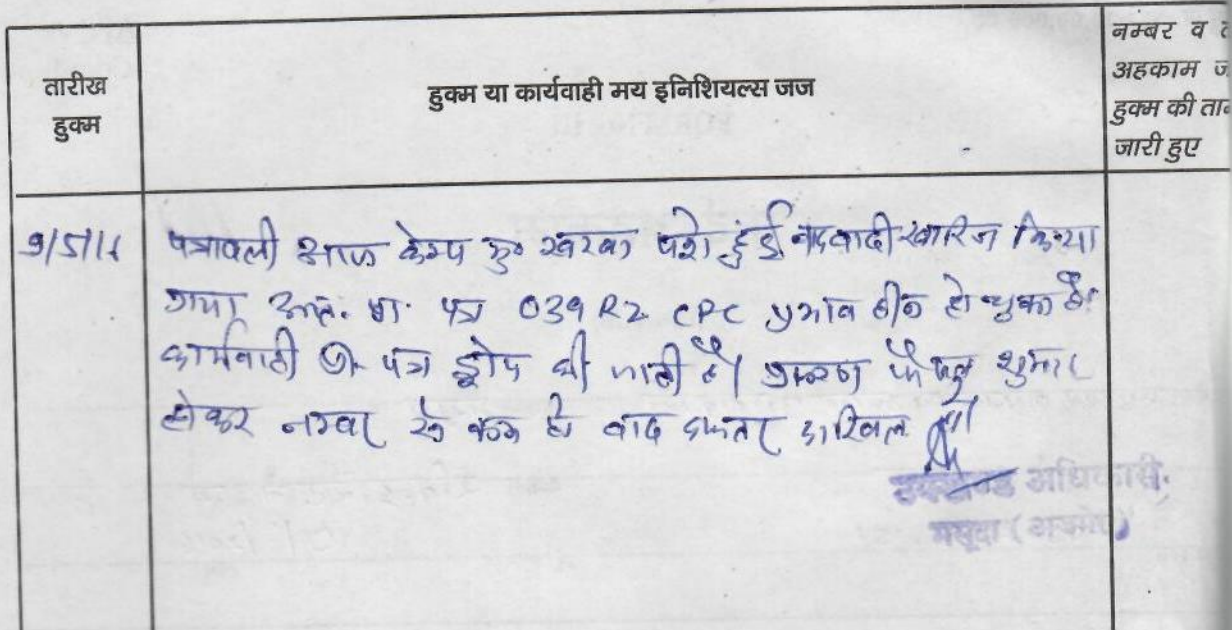 तारीख
हुक्म
हुक्म या कार्यवाही मय इनिशियल्स जज
नम्बर व
अहकाम ज
हुक्म की ता
जारी हुए
पत्रावली आज केम्प खरवा पेश हुई वादवादी खारिज किया
गया अतः प्रा. पत्र 039 R2 CPC प्रभाव हीन हो चुका है।
कार्यवाही प्रा. पत्र ड्रोप की जाती है। प्रकरण फैसल शुमार
होकर नम्बर से कम हो बाद दफ्तर दाखिल हो।
उपखण्ड अधिकारी,
मसूदा (अजमेर)